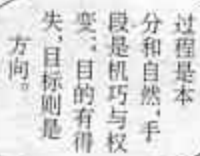 过程是本
分和自然,手
段是机巧与权
变;目的有得
失,目标则是
方向。